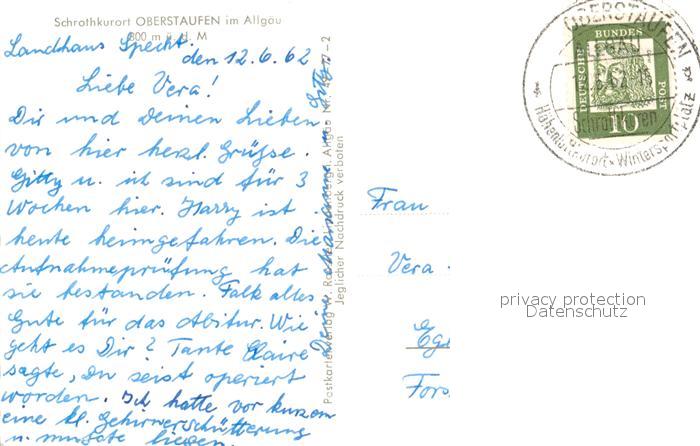 Schrothkurort OBERSTAUFEN im Allgäu
800 m ü. d. M
Landhaus Specht.
den 12.6.62
Liebe Vera!
Dir und Deinen Lieben
von hier herzl. Grüsse.
Gitty u. ich sind für 3
Wochen hier. Harry ist
heute heimgefahren. Die
Aufnahmeprüfung hat
sie bestanden. Falk alles
Gute für das Abitur. Wie
geht es Dir? Tante Claire
sagte, Du seist operiert
worden. Ich hatte vor kurzem
eine kl. Gehirnerschütterung
u. musste liegen.
Deine Marianne
Gitty
Postkartenverlag
Allgäu
Jeglicher Nachdruck verboten
Frau
Vera
Ege
Fors
OBERSTAUFEN
ALLGÄU
Schrothkuren
Höhenluftkurort * Wintersportplatz
DEUTSCHE
BUNDES
POST
10
privacy protection
Datenschutz